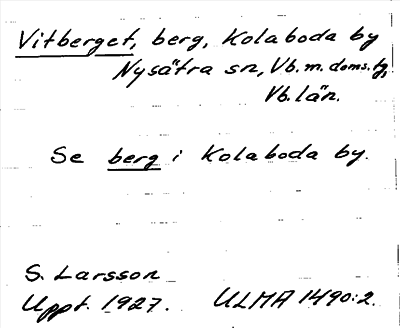 Vitberget, berg, Kolaboda by
Nysätra sn, Vb. m. doms. tg,
Vb. län.
Se berg i Kolaboda by.
S. Larsson
Uppt. 1927. ULMA 1490:2.